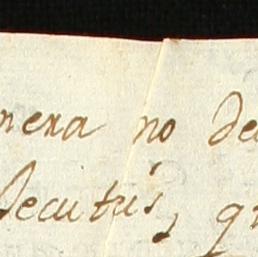 nera no de
secutús, q